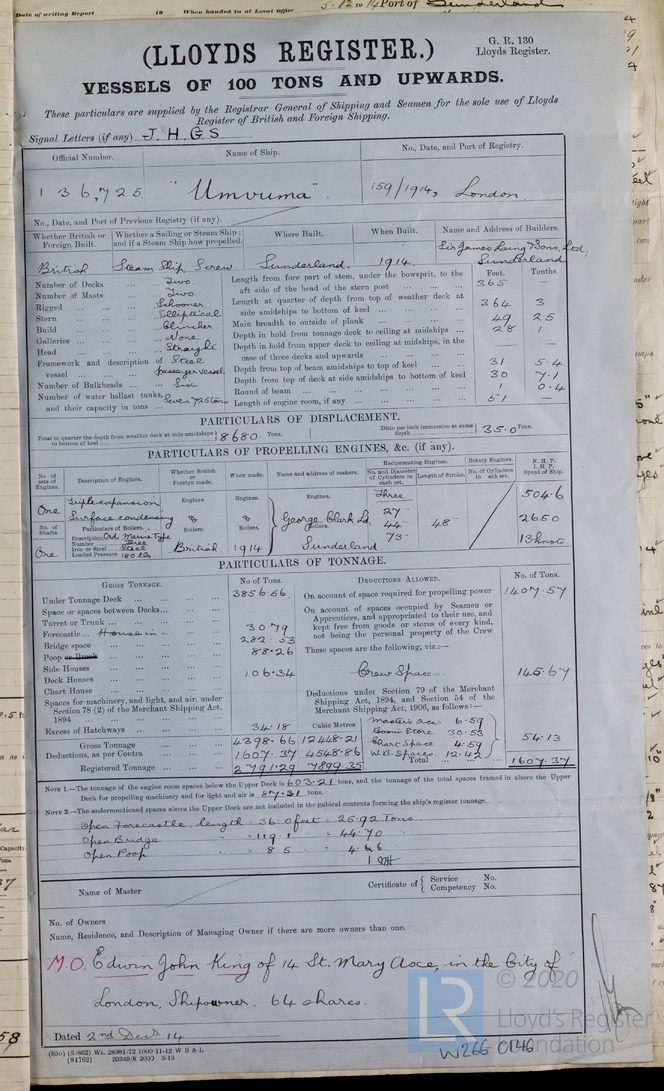 Date of writing Report 19 When handed in at Local Office 5-12-1914 Port of Sunderland
(LLOYDS REGISTER.)
G. R. 130
Lloyds Register.
VESSELS OF 100 TONS AND UPWARDS.
These particulars are supplied by the Registrar General of Shipping and Seamen for the sole use of Lloyds
Register of British and Foreign Shipping.
Signal Letters (if any) J. H. G. S.
Official Number. Name of Ship. No., Date, and Port of Registry.
136,725 "Umvuma" 159/1914, London.
No., Date, and Port of Previous Registry (if any).
Whether British or Foreign Built. Whether a Sailing or Steam Ship; and if a Steam Ship how propelled. Where Built. When Built. Name and Address of Builders.
British Steam Ship Screw Sunderland. 1914. Sir James Laing & Sons, Ltd. Sunderland
Feet. Tenths
Number of Decks ... Two
Number of Masts ... Two
Rigged ... Schooner
Stern ... Elliptical
Build ... Clincher
Galleries ... None
Head ... Straight
Framework and description of vessel ... Steel passenger vessel
Number of Bulkheads ... Six
Number of water ballast tanks, and their capacity in tons ... Seven 725 tons
Length from fore part of stem, under the bowsprit, to the aft side of the head of the stern post ... 365 —
Length at quarter of depth from top of weather deck at side amidships to bottom of keel ... 364 3
Main breadth to outside of plank ... 49 2.5
Depth in hold from tonnage deck to ceiling at midships ... 28 1
Depth in hold from upper deck to ceiling at midships, in the case of three decks and upwards ... — —
Depth from top of beam amidships to top of keel ... 31 5.4
Depth from top of deck at side amidships to bottom of keel 30 7.1
Round of beam ... 1 0.4
Length of engine room, if any ... 51 —
PARTICULARS OF DISPLACEMENT.
Total to quarter the depth from weather deck at side amidships to bottom of keel 8680 Tons.
Ditto per inch immersion at same depth 35.0 Tons.
PARTICULARS OF PROPELLING ENGINES, &c. (if any).
No. of sets of Engines. Description of Engines. Whether British or Foreign made. When made. Name and address of makers. Reciprocating Engines. No. and Diameter of Cylinders in each set. Length of Stroke. Rotary Engines. No. of Cylinders in each set. N. H. P. I. H. P. Speed of Ship.
One Triple expansion Surface condensing Engines. Engines. Engines. Three 504.6
27" 44" 73" 48" 2650
13 knots
No. of Shafts. Particulars of Boilers. & Boilers. & Boilers. George Clark Ld. Boilers. Sunderland
One Description Ord. Marine Type British 1914
Number Three
Iron or Steel Steel
Loaded Pressure 180 lbs
PARTICULARS OF TONNAGE.
GROSS TONNAGE. No of Tons. DEDUCTIONS ALLOWED. No. of Tons.
Under Tonnage Deck ... 3856.56
Space or spaces between Decks ...
Turret or Trunk ...
Forecastle ... House in ... 30.79
Bridge space ... 282.53
Poop or Break ... 88.26
Side Houses ...
Deck Houses ... 106.34
Chart House ...
Spaces for machinery, and light, and air, under Section 78 (2) of the Merchant Shipping Act, 1894
Excess of Hatchways ... 34.18
Cubic Metres
Gross Tonnage ... 4398.66 12448.21
Deductions, as per Contra ... 1607.37 4548.86
Registered Tonnage ... 2791.29 7899.35
On account of space required for propelling power 1407.57
On account of spaces occupied by Seamen or Apprentices, and appropriated to their use, and kept free from goods or stores of every kind, not being the personal property of the Crew
These spaces are the following, viz:—
Crew Spaces 145.67
Deductions under Section 79 of the Merchant Shipping Act, 1894, and Section 54 of the Merchant Shipping Act, 1906, as follows:—
Master's acc. 6.59
Boson's Store 30.53
Chart Space 4.59
W.B. Spaces 12.42
54.13
Total ... 1607.37
NOTE 1.—The tonnage of the engine room spaces below the Upper Deck is 603.21 tons, and the tonnage of the total spaces framed in above the Upper
Deck for propelling machinery and for light and air is 87.31 tons.
NOTE 2.—The undermentioned spaces above the Upper Deck are not included in the cubical contents forming the ship's register tonnage.
Open Forecastle, length = 36.0 feet = 25.92 Tons
Open Bridge " = 119.1 " = 44.70 "
Open Poop " = 8.5 " = 4.66 "
Name of Master Certificate of { Service No. Competency No.
No. of Owners
Name, Residence, and Description of Managing Owner if there are more owners than one.
M.O. Edwin John King of 14 St. Mary Axe, in the City of
London, Shipowner. 64 shares.
Dated 2nd Decr 14
(83o) (5/862) Wt. 28981/72 1000 11-12 W B & L
(81762) 20349/8 2000 3-13
© 2020
LR
Lloyd's Register
Foundation
W266-0146